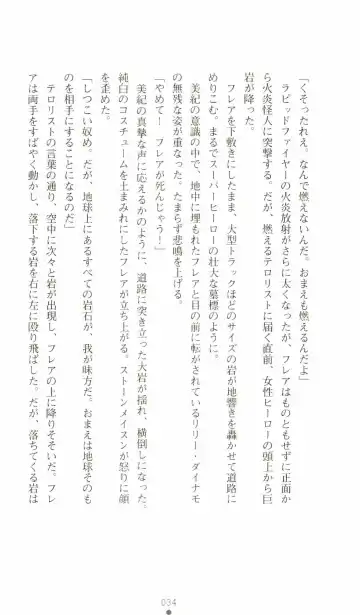 「くそったれえ、なんで燃えないんだ。おまえも燃えるんだよ」
　ラピッドファイヤーの火炎放射がさらに太くなったが、フレアはものともせずに正面か
ら火炎怪人に突撃する。だが、燃えるテロリストに届く直前、女性ヒーローの頭上から巨
岩が降った。
　フレアを下敷きにしたまま、大型トラックほどのサイズの岩が地響きを轟かせて道路に
めりこむ。まるでスーパーヒーローの壮大な墓標のように。
　美紀の意識の中で、地中に埋もれたフレアと目の前に転がされているリリー・ダイナモ
の無残な姿が重なった。たまらず悲鳴を上げる。
「やめてー！　フレアが死んじゃう！」
　美紀の真摯な声に応えるかのように、道路に突き立った大岩が揺れ、横倒しになった。
純白のコスチュームを土まみれにしたフレアが立ち上がる。ストーンメイスンが怒りに顔
を歪めた。
「しつこい奴め。だが、地球上にあるすべての岩石が、我が味方だ。おまえは地球そのも
のを相手にすることになるのだ」
　テロリストの言葉の通り、空中に次々と岩が出現し、フレアの上に降りそそいだ。フレ
アは両手をすばやく動かし、落下する岩を右に左に殴り飛ばした。だが、落ちてくる岩は
034